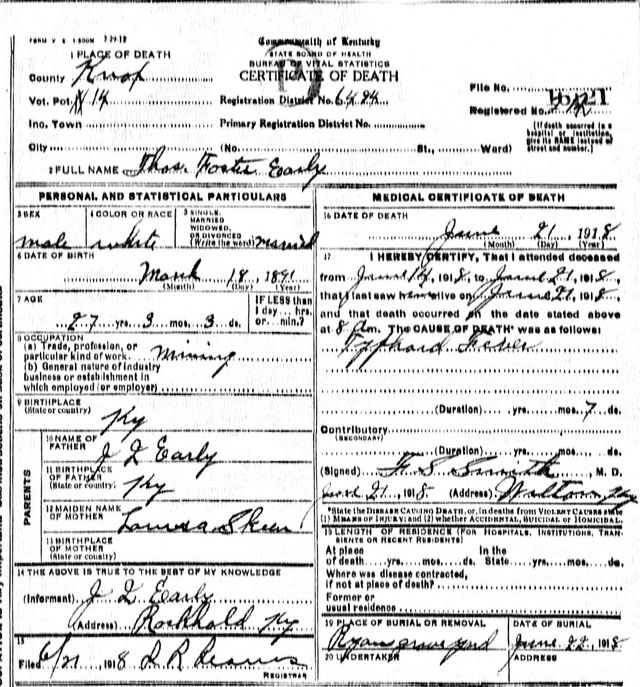 FORM V. S. 1
Commonwealth of Kentucky
STATE BOARD OF HEALTH
BUREAU OF VITAL STATISTICS
CERTIFICATE OF DEATH
1 PLACE OF DEATH
County Knox
Vot. Pct. 14
Registration District No. 6484
File No.
Inc. Town
Primary Registration District No.
Registered No.
City (No. St., Ward)
(If death occurred in a hospital or institution, give its NAME instead of street and number.)
2 FULL NAME Thos. Foster Early
PERSONAL AND STATISTICAL PARTICULARS
3 SEX
male
4 COLOR OR RACE
white
5 SINGLE, MARRIED WIDOWED, OR DIVORCED (Write the word) married
6 DATE OF BIRTH
March 18, 1891
(Month) (Day) (Year)
7 AGE
27 yrs. 3 mos. 3 ds.
IF LESS than 1 day ... hrs. or ... min.?
8 OCCUPATION
(a) Trade, profession, or particular kind of work mining
(b) General nature of industry business or establishment in which employed (or employer)
9 BIRTHPLACE
(State or country) Ky
PARENTS
10 NAME OF FATHER J L Early
11 BIRTHPLACE OF FATHER (State or country) Ky
12 MAIDEN NAME OF MOTHER Louisa Skeen
13 BIRTHPLACE OF MOTHER (State or country)
14 THE ABOVE IS TRUE TO THE BEST OF MY KNOWLEDGE
(Informant) J L Early
(Address) Rockhold Ky
15
Filed 6/21, 1918
REGISTRAR
MEDICAL CERTIFICATE OF DEATH
16 DATE OF DEATH
June 21, 1918
(Month) (Day) (Year)
17 I HEREBY CERTIFY, That I attended deceased
from June 14, 1918, to June 21, 1918,
that I last saw him alive on June 21, 1918,
and that death occurred on the date stated above
at 8 am. The CAUSE OF DEATH* was as follows:
Typhoid Fever
(Duration) yrs. mos. 7 ds.
Contributory
(SECONDARY)
(Duration) yrs. mos. ds.
(Signed) F. S. Smith, M. D.
June 21, 1918. (Address) Wilton, Ky
*State the DISEASE CAUSING DEATH, or, in deaths from VIOLENT CAUSES state
(1) MEANS OF INJURY; and (2) whether ACCIDENTAL, SUICIDAL or HOMICIDAL.
18 LENGTH OF RESIDENCE (FOR HOSPITALS, INSTITUTIONS, TRANSIENTS OR RECENT RESIDENTS)
At place of death yrs. mos. ds. In the State yrs. mos. ds.
Where was disease contracted, if not at place of death?
Former or usual residence
19 PLACE OF BURIAL OR REMOVAL
Ryan grave yard
DATE OF BURIAL
June 22, 1918
20 UNDERTAKER
ADDRESS